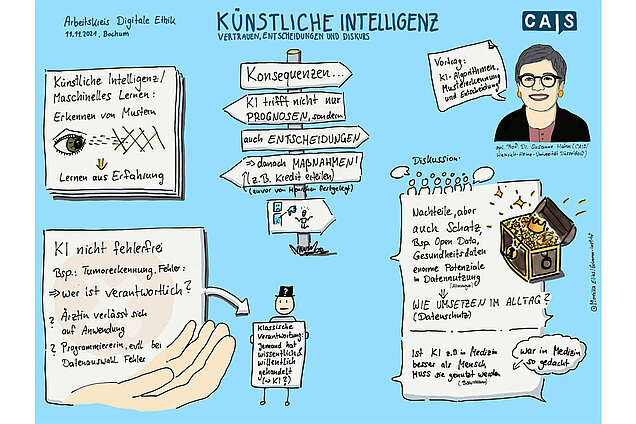 Arbeitskreis Digitale Ethik
11.11.2021, Bochum
KÜNSTLICHE INTELLIGENZ
VERTRAUEN, ENTSCHEIDUNGEN UND DISKURS
CAIS
Künstliche Intelligenz/
Maschinelles Lernen:
Erkennen von Mustern
Lernen aus Erfahrung
Konsequenzen...
KI trifft nicht nur
PROGNOSEN, sondern
auch ENTSCHEIDUNGEN
⇒ danach MAẞNAHMEN!
(z.B. Kredit erteilen)
(zuvor von Menschen festgelegt)
Vortrag:
KI-Algorithmen,
Mustererkennung
und Entscheidung
apl. Prof. Dr. Susanne Hahn (CAIS/
Heinrich-Heine-Universität Düsseldorf)
KI nicht fehlerfrei
Bsp.: Tumorerkennung, Fehler:
⇒ wer ist verantwortlich?
? Ärztin verlässt sich
auf Anwendung
? Programmiererin, evtl. bei
Datenauswahl Fehler
?
Klassische
Verantwortung:
Jemand hat
wissentlich &
willentlich
gehandelt
(⇔ KI?)
Diskussion:
Nachteile, aber
auch Schatz, –
Bsp. Open Data,
Gesundheitsdaten
enorme Potenziale
in Datennutzung
WIE UMSETZEN IM ALLTAG?
(Datenschutz)
Ist KI z.B. in Medizin
besser als Mensch
Muss sie genutzt werden
war in Medizin
so gedacht